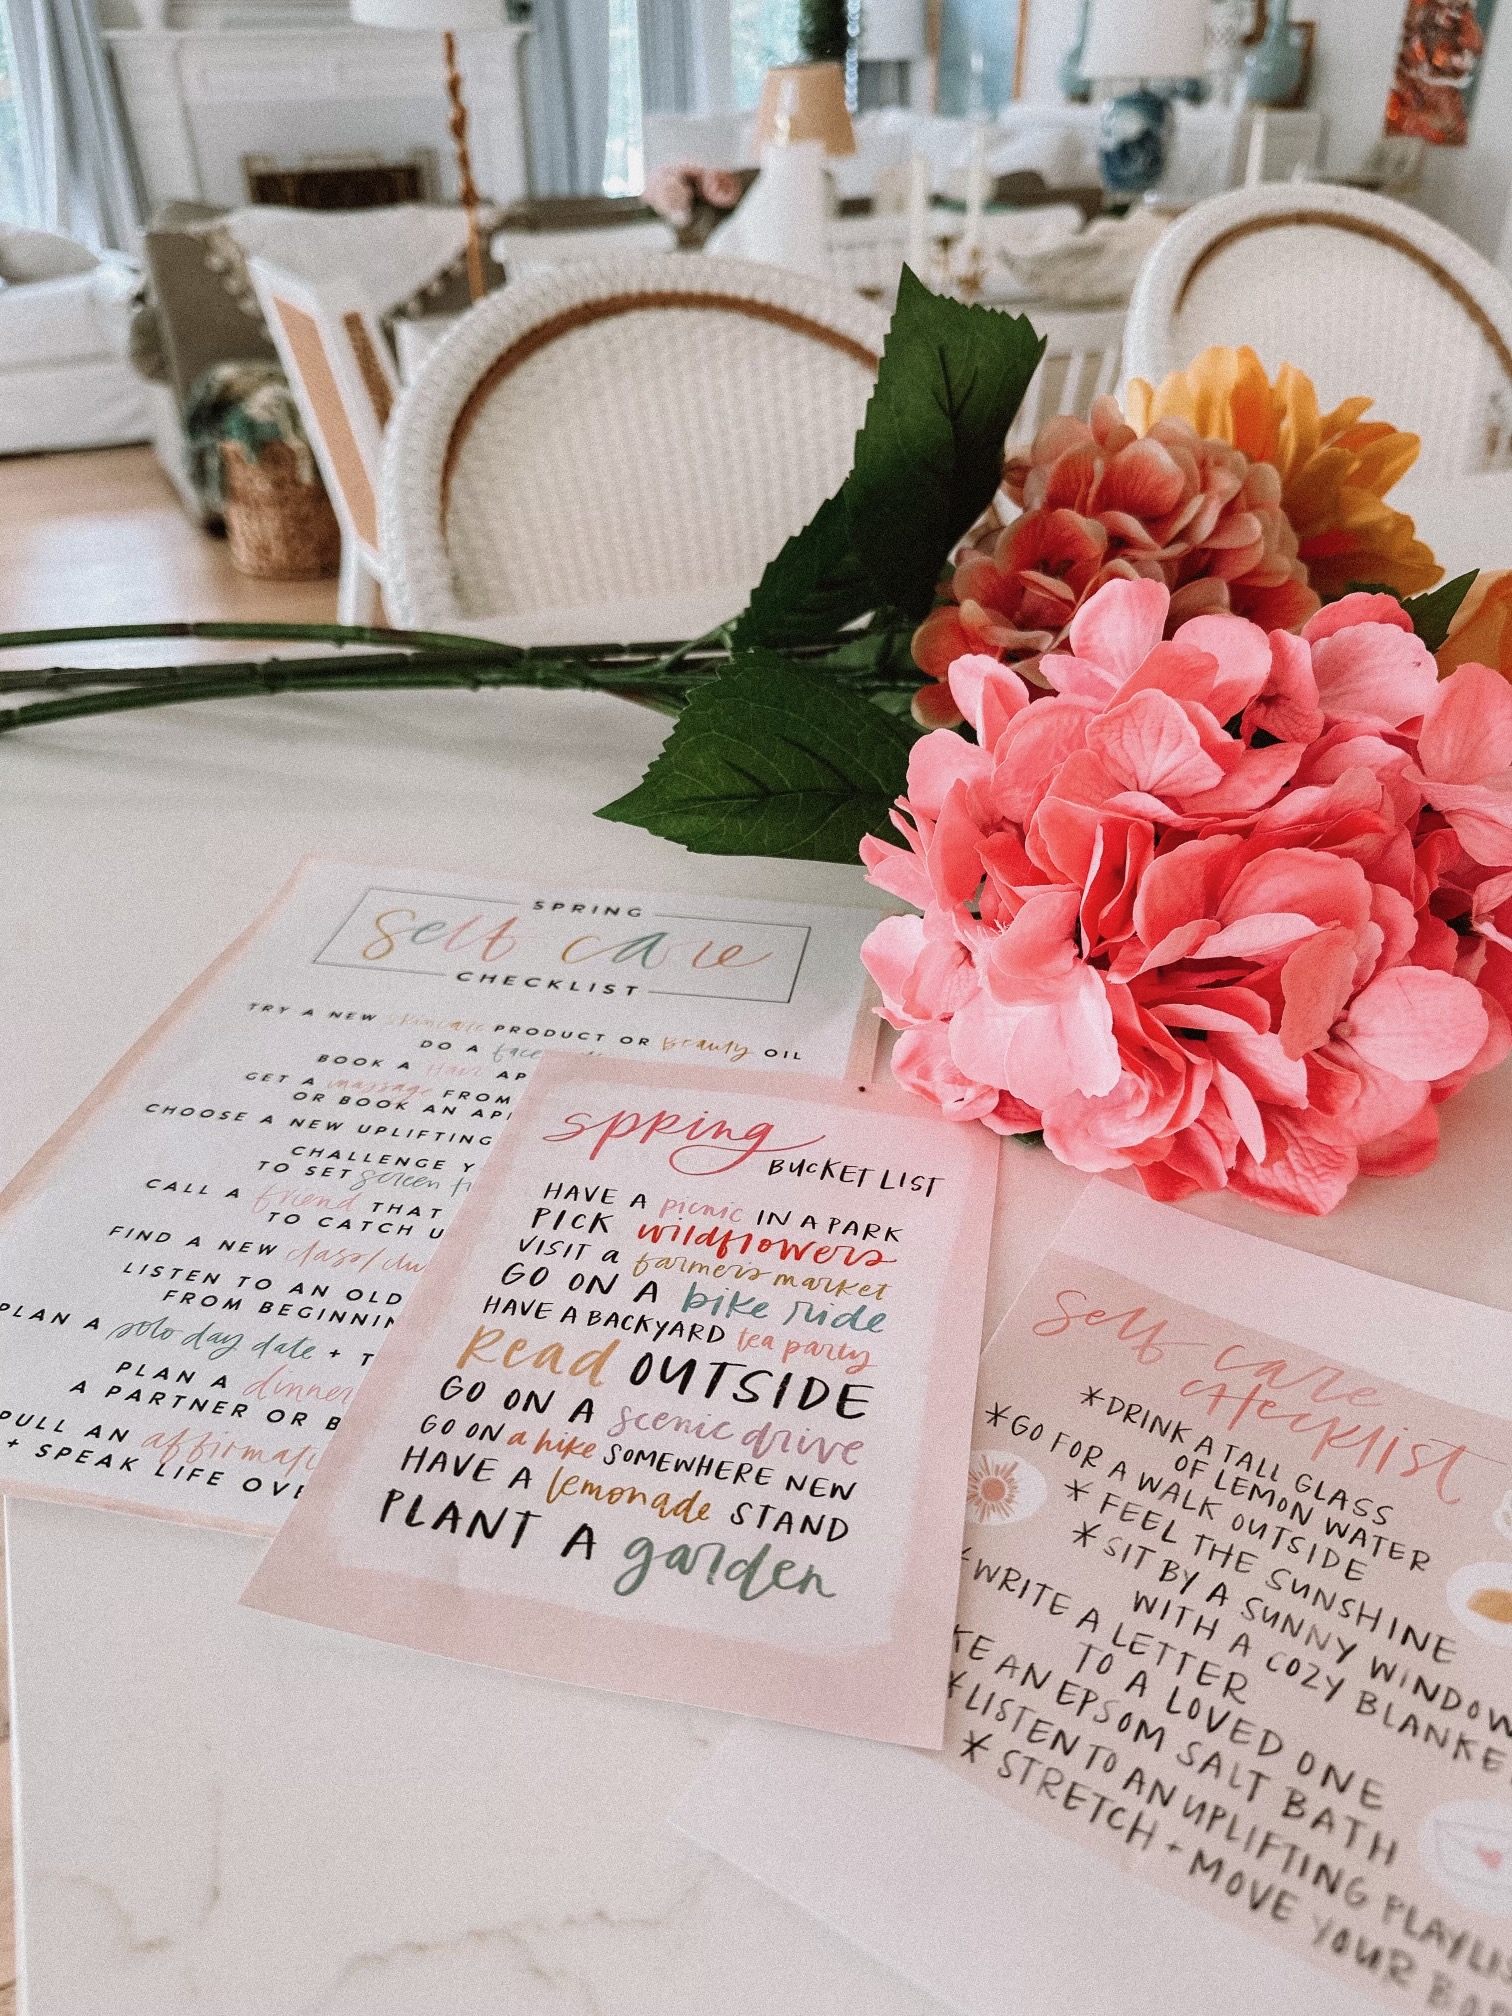 SPRING
self care
CHECKLIST
TRY A NEW skincare PRODUCT OR beauty OIL
DO A face
BOOK A hair AP
GET A massage FROM
OR BOOK AN AP
CHOOSE A NEW UPLIFTING
CHALLENGE Y
TO SET screen
CALL A friend THAT
TO CATCH U
FIND A NEW class/
LISTEN TO AN OLD
FROM BEGINNIN
PLAN A solo day date + T
PLAN A dinner
A PARTNER OR B
PULL AN affirmati
+ SPEAK LIFE OVE
spring
BUCKET LIST
HAVE A picnic IN A PARK
PICK wildflowers
VISIT a farmers market
GO ON A bike ride
HAVE A BACKYARD tea party
Read OUTSIDE
GO ON A scenic drive
GO ON a hike SOMEWHERE NEW
HAVE A lemonade STAND
PLANT A garden
self care
checklist
*DRINK A TALL GLASS
OF LEMON WATER
*GO FOR A WALK OUTSIDE
* FEEL THE SUNSHINE
*SIT BY A SUNNY WINDOW
WITH A COZY BLANKE
*WRITE A LETTER
TO A LOVED ONE
KE AN EPSOM SALT BATH
*LISTEN TO AN UPLIFTING PLAYLIS
* STRETCH + MOVE YOUR BO